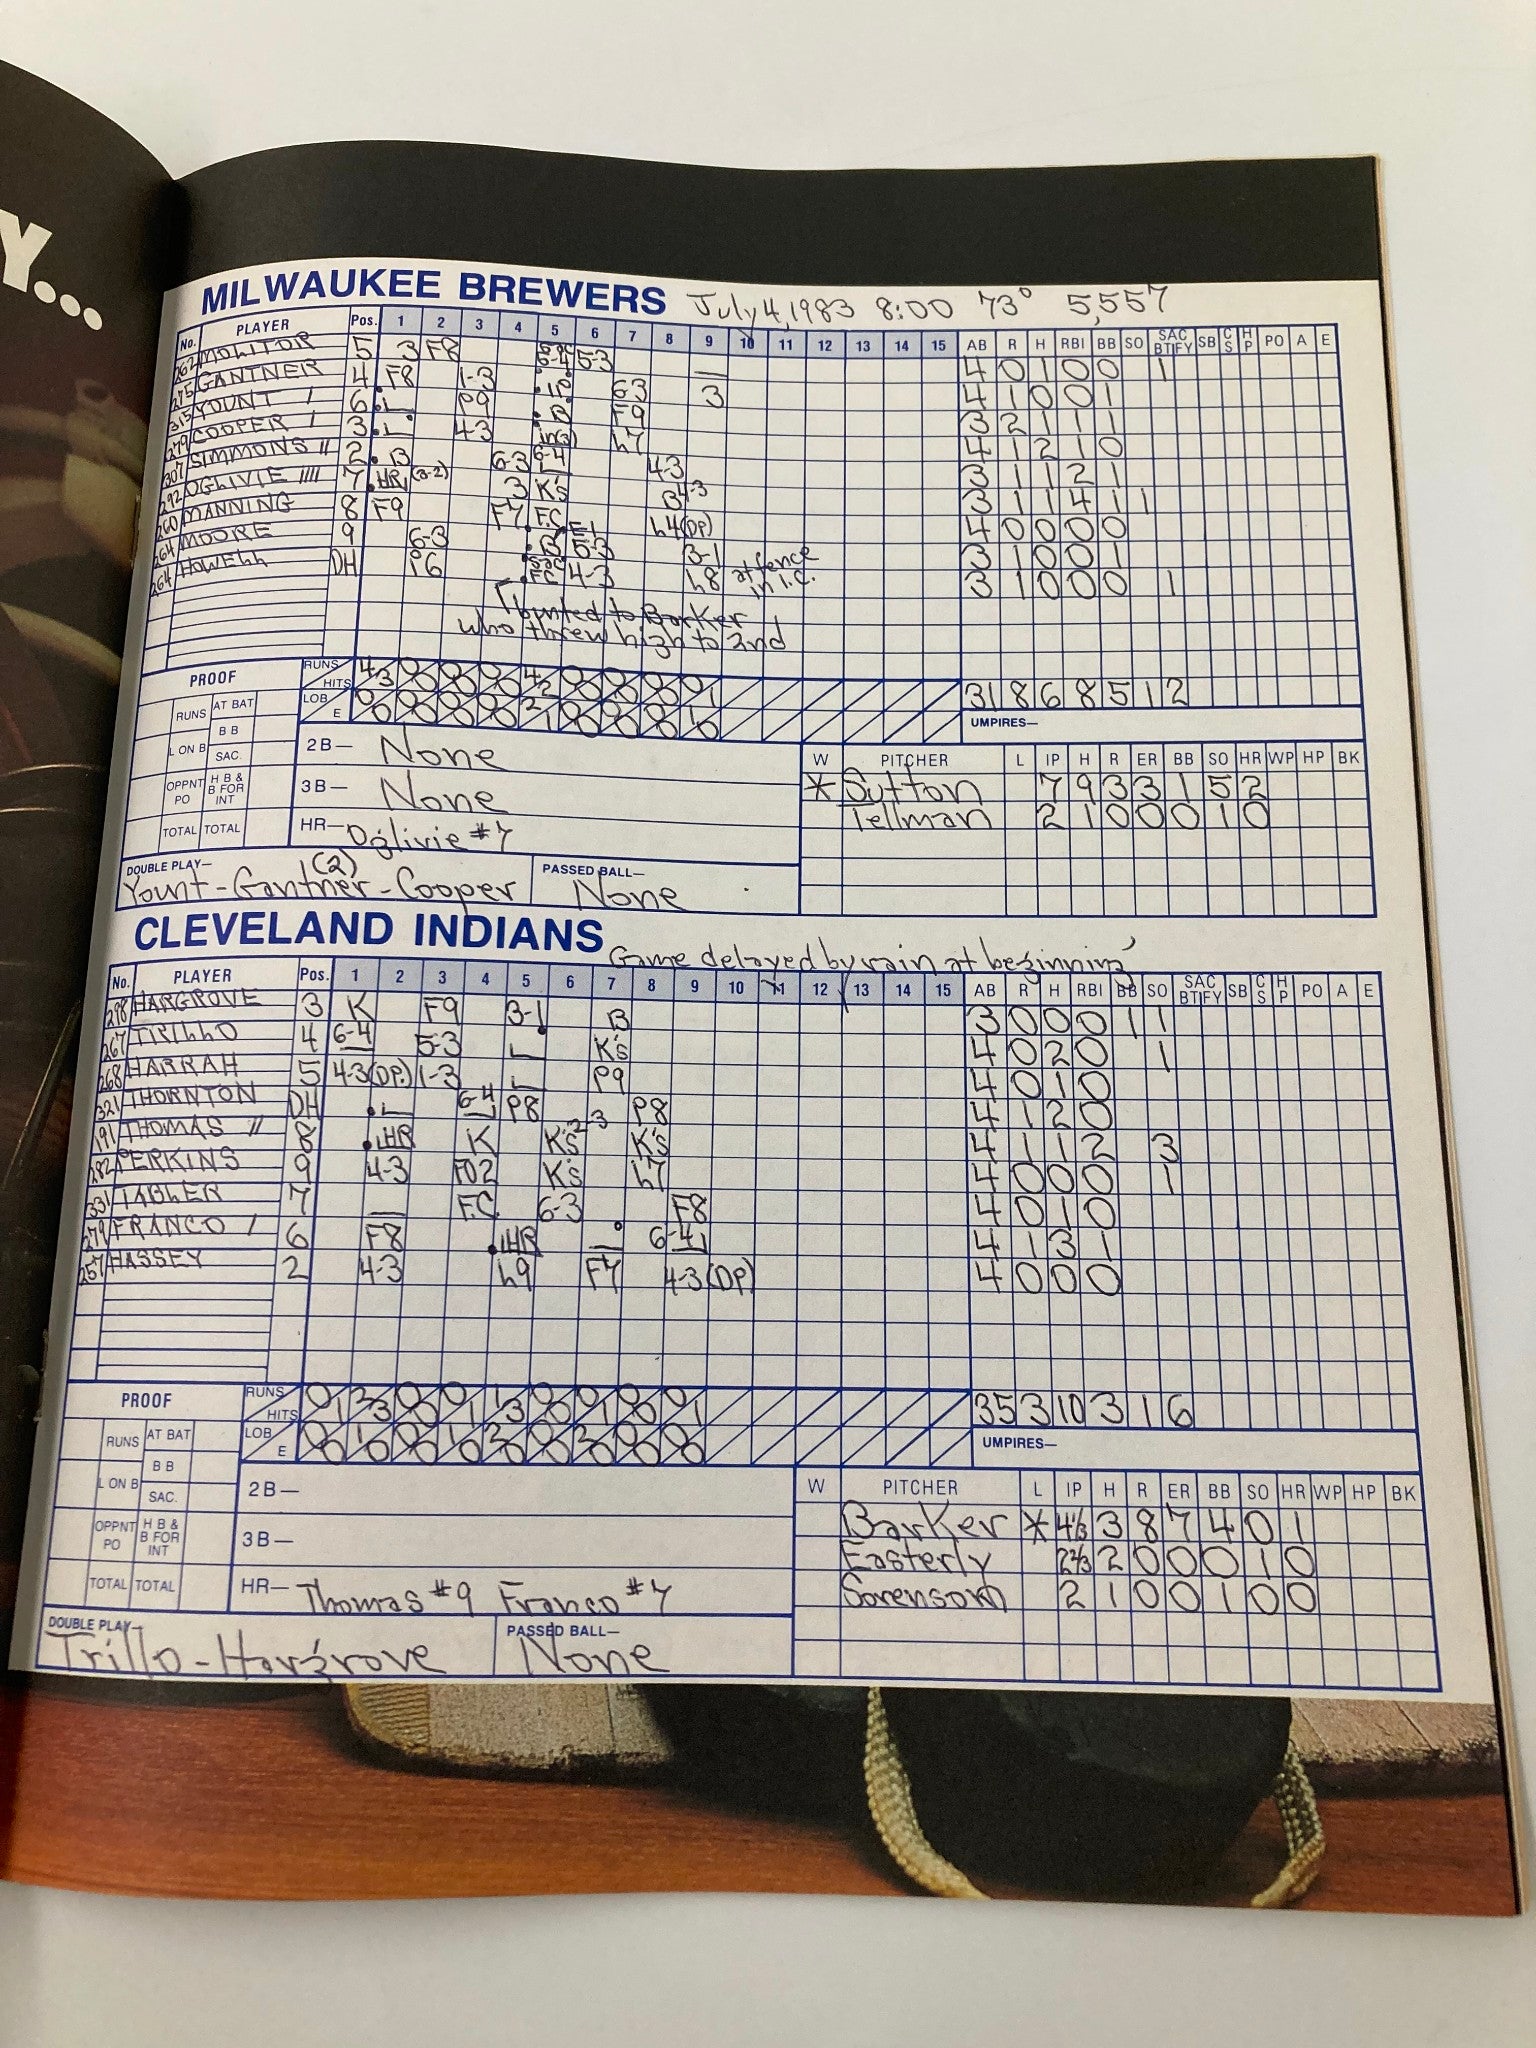 Y...
MILWAUKEE BREWERS July 4, 1983 8:00 73° 5,557
No. PLAYER Pos. 1 2 3 4 5 6 7 8 9 10 11 12 13 14 15 AB R H RBI BB SO SAC BT FY SB CS HP PO A E
262 MOLITOR 5 3 F8 5-3 — 4 0 1 0 0 1
275 GANTNER 4 F8 1-3 63 3 4 1 0 0 1
315 YOUNT 6 P9 B F9 3 2 1 1 1
279 COOPER 3 4-3 L7 4 1 2 1 0
307 SIMMONS 2 B 6-3 6-4 4-3 3 1 1 2 1
292 OGLIVIE 7 HR (3-2) 3 K's B 4-3 3 1 1 4 1 1
260 MANNING 8 F9 F7 F.C. L4(DP) 4 0 0 0 0
264 MOORE 9 6-3 B E-1 5-3 3-1 3 1 0 0 1
264 HOWELL DH P6 SAC FC 4-3 L8 at fence in l.c. 3 1 0 0 0 1
bunted to Barker
who threw high to 2nd
PROOF RUNS HITS 4/3 0/0 0/0 0/0 4/2 0/0 0/0 0/0 0/1 31 8 6 8 5 1 2
RUNS AT BAT LOB E 0/0 0/0 0/0 0/0 2/1 0/0 0/0 0/0 1/0 UMPIRES—
B B
L ON B SAC. 2B— None W PITCHER L IP H R ER BB SO HR WP HP BK
OPPNT PO H B & B FOR INT 3B— None * Sutton 7 9 3 3 1 5 2
TOTAL TOTAL HR— Oglivie #7 Tellman 2 1 0 0 0 1 0
DOUBLE PLAY— (2) Yount-Gantner-Cooper PASSED BALL— None
CLEVELAND INDIANS Game delayed by rain at beginning
No. PLAYER Pos. 1 2 3 4 5 6 7 8 9 10 11 12 13 14 15 AB R H RBI BB SO SAC BT FY SB CS HP PO A E
298 HARGROVE 3 K F9 3-1 B 3 0 0 0 1 1
267 TRILLO 4 6-4 5-3 K's 4 0 2 0 1
268 HARRAH 5 4-3(DP.) 1-3 P9 4 0 1 0
321 THORNTON DH 6-4 P8 P8 4 1 2 0
191 THOMAS 8 HR K K's 2-3 K's 4 1 1 2 3
282 PERKINS 9 4-3 FO2 K's L7 4 0 0 0 1
331 TABLER 7 — F.C. 6-3 F8 4 0 1 0
279 FRANCO 6 F8 HR — 6-4 4 1 3 1
257 HASSEY 2 4-3 L9 F7 4-3(DP) 4 0 0 0
PROOF RUNS HITS 0/1 2/3 0/0 0/1 1/3 0/0 0/1 0/0 0/1 35 3 10 3 1 6
RUNS AT BAT LOB E 0/0 1/0 0/0 1/0 2/0 0/0 2/0 0/0 0/0 UMPIRES—
B B
L ON B SAC. 2B— W PITCHER L IP H R ER BB SO HR WP HP BK
OPPNT PO H B & B FOR INT 3B— Barker * 4 1/3 3 8 7 4 0 1
Easterly 2 2/3 2 0 0 0 1 0
TOTAL TOTAL HR— Thomas #9 Franco #7 Sorensom 2 1 0 0 1 0 0
DOUBLE PLAY— Trillo-Hargrove PASSED BALL— None